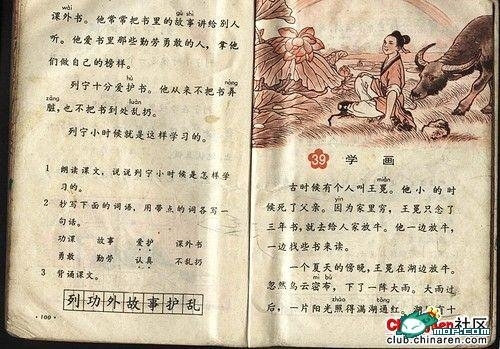 wài
gù shi
课外书。他常常把书里的故事讲给别人
听。他爱书里那些勤劳勇敢的人，拿他
们做自己的榜样。
hù
nòng
列宁十分爱护书。他从来不把书弄
zāng
luàn
脏，也不把书到处乱扔。
列宁小时候就是这样学习的。
1 朗读课文，说说列宁小时候是怎样学
习的。
2 抄写下面的词语，用带点的词各写一
句话。
功课 故事 爱护 课外书
勇敢 勤劳 认真 不乱扔
3 背诵课文。
列功外故事护乱
·100·
39 学 画
miǎn
古时候有个人叫王冕。他小的时
yīn
候死了父亲。因为家里穷，王冕只念了
三年书，就去给人家放牛。他一边放牛，
一边找些书来读。
一个夏天的傍晚，王冕在湖边放牛。
mì bù
忽然乌云密布，下了一阵大雨。大雨过
zhào tōng
后，一片阳光照得满湖通红。湖里有十
社区
club.chinaren.com